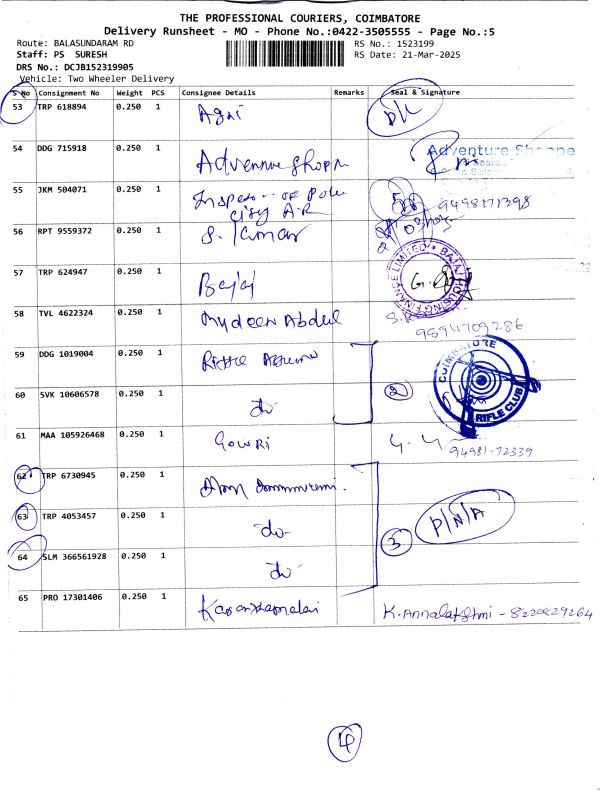 THE PROFESSIONAL COURIERS, COIMBATORE
Delivery Runsheet - MO - Phone No.:0422-3505555 - Page No.:5
Route: BALASUNDARAM RD
RS No.: 1523199
Staff: PS SURESH
RS Date: 21-Mar-2025
DRS No.: DCJB152319905
Vehicle: Two Wheeler Delivery
S No Consignment No Weight PCS Consignee Details Remarks Seal & Signature
53 TRP 618894 0.250 1 Agni D/L
54 DDG 715918 0.250 1 Adventure Shopp Adventure Shoppe
55 JKM 504071 0.250 1 Inspector OF Police
City AR 9498171398
56 RPT 9559372 0.250 1 S. Kumar
57 TRP 624947 0.250 1 Bajaj BAJAJ HOUSING FINANCE LIMITED
58 TVL 4622324 0.250 1 Mydeen Abdul 9894709286
59 DDG 1019004 0.250 1 Rifle COIMBATORE RIFLE CLUB
60 SVK 10606578 0.250 1 do 2
61 MAA 105926468 0.250 1 Gowri 94981-72339
62 TRP 6730945 0.250 1
63 TRP 4053457 0.250 1 do 3 P/N/A
64 SLM 366561928 0.250 1 do
65 PRO 17301406 0.250 1 K. Annalakshmi - 8220829264
4